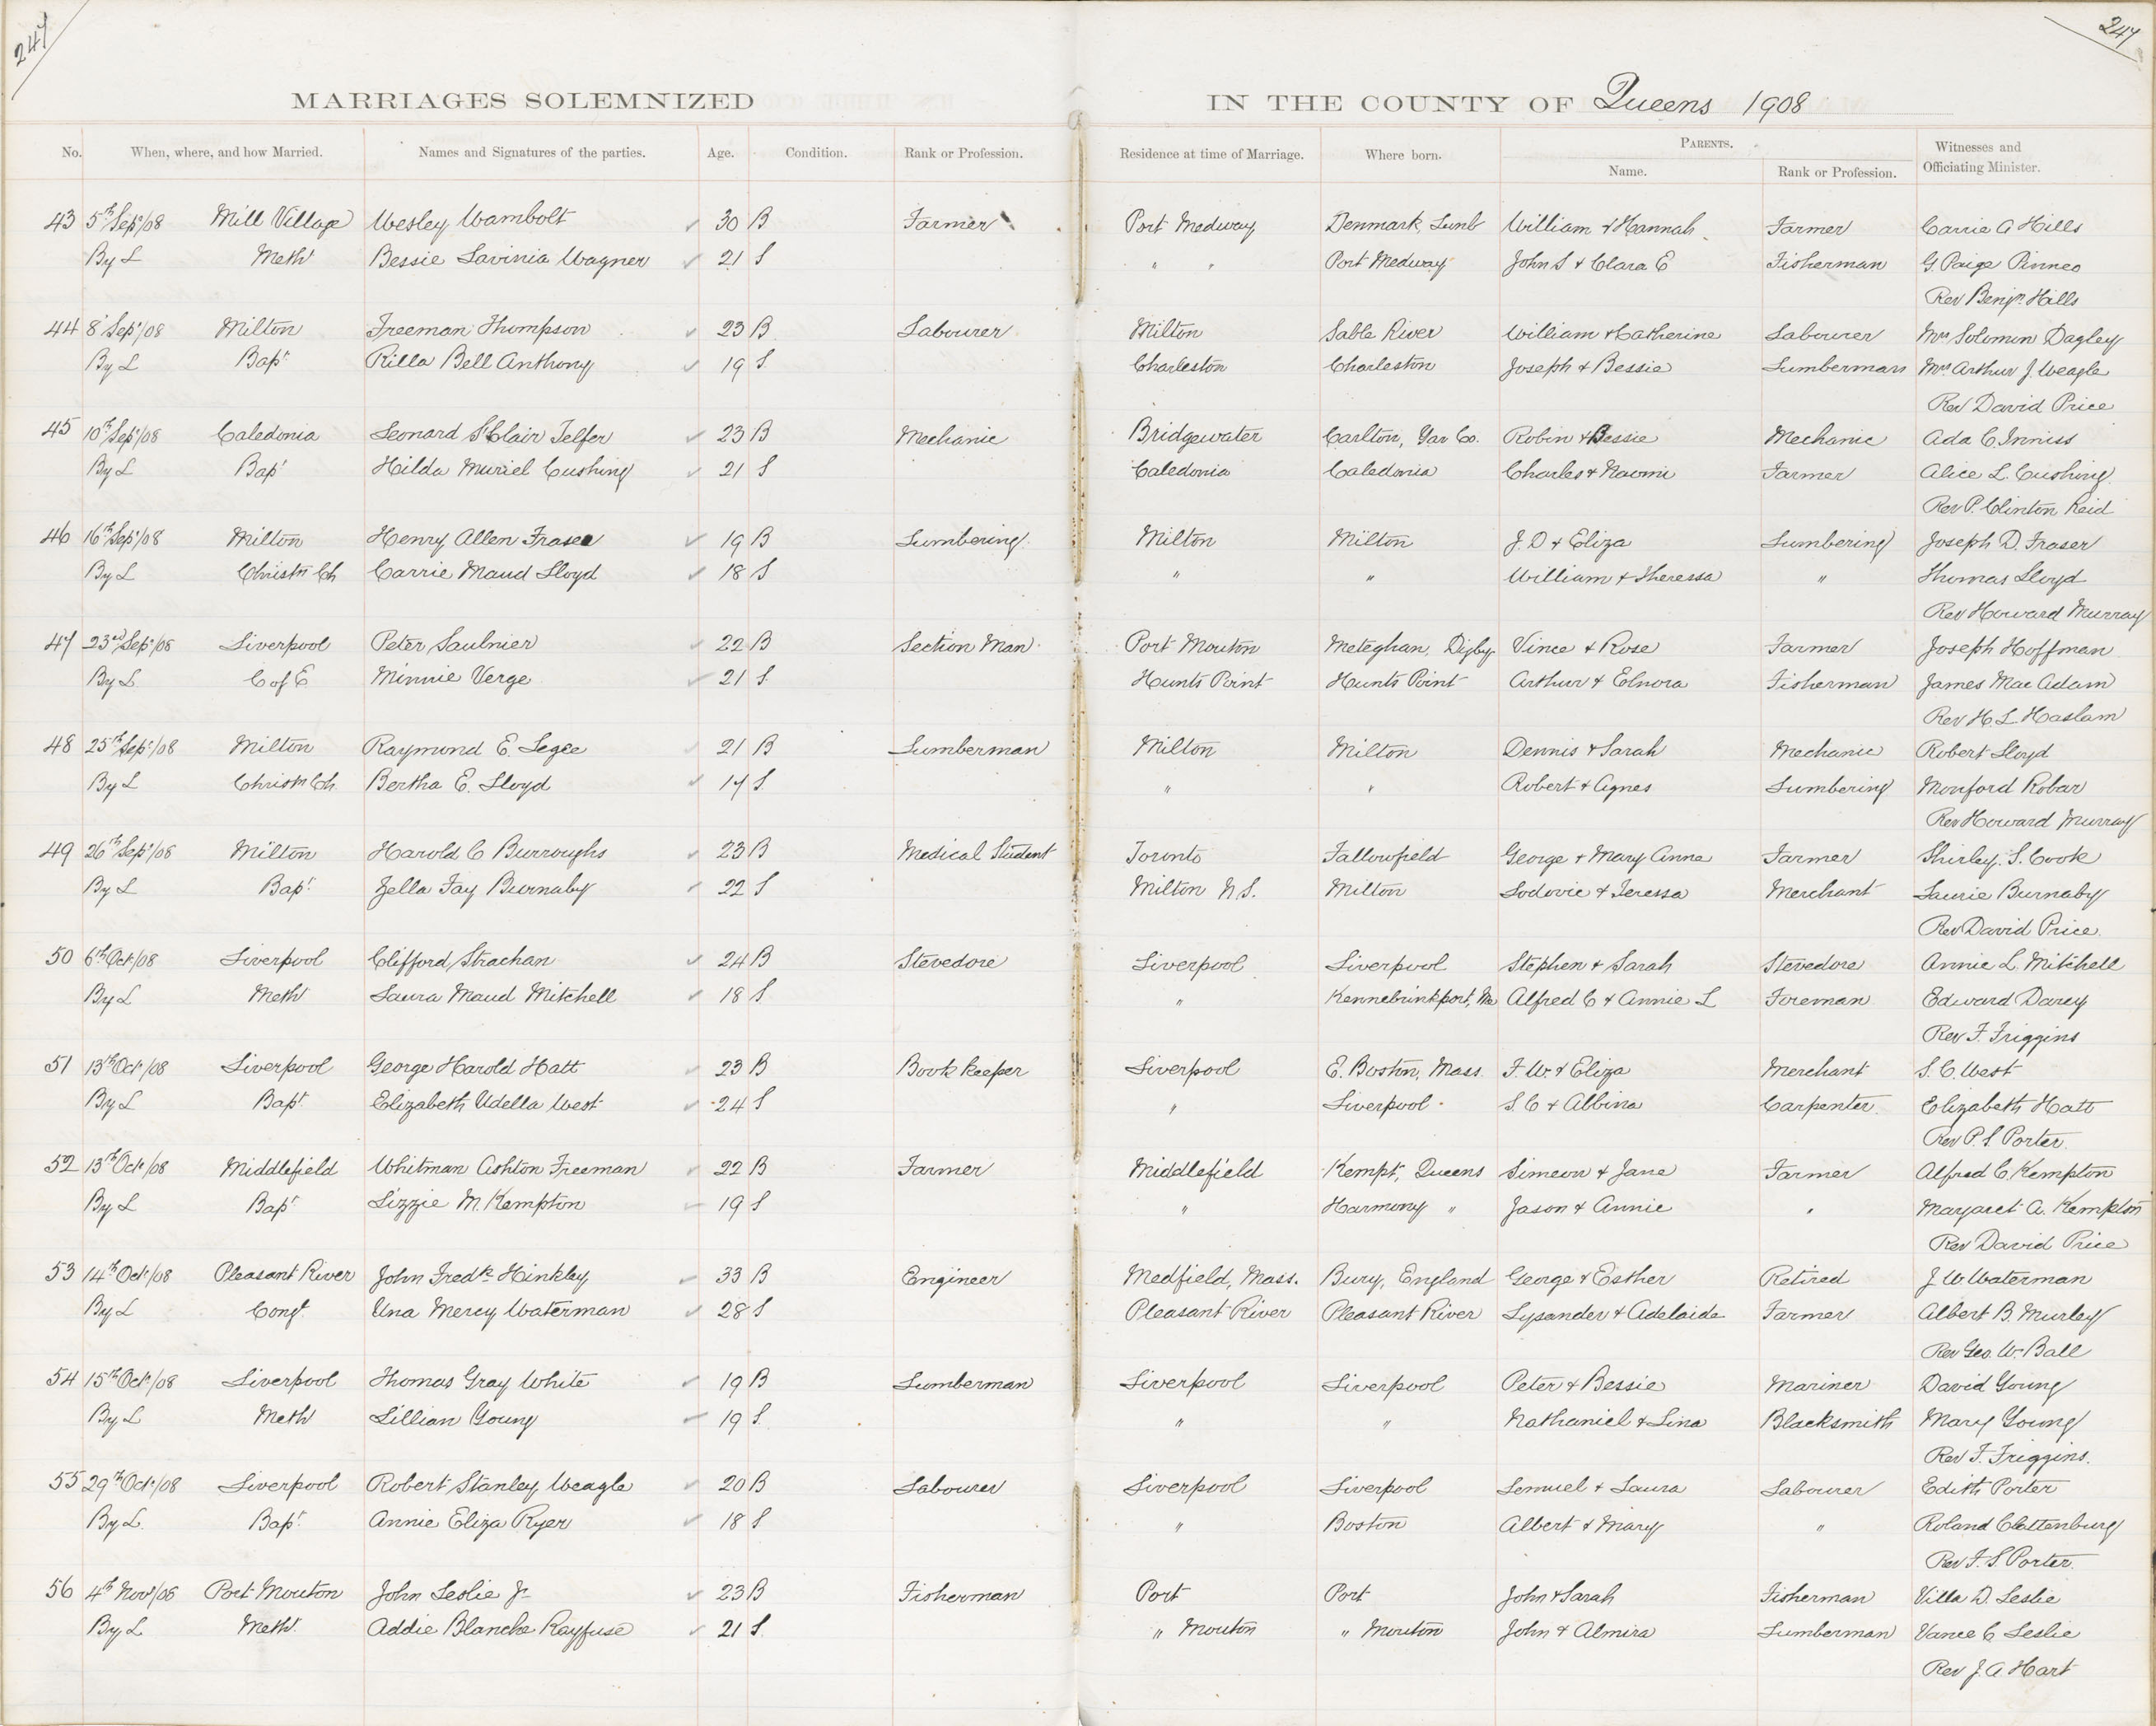 247
247
MARRIAGES SOLEMNIZED IN THE COUNTY OF Queens 1908
No. When, where, and how Married. Names and Signatures of the parties. Age. Condition. Rank or Profession. Residence at time of Marriage. Where born. PARENTS. Witnesses and Officiating Minister.
Name. Rank or Profession.
43 5th Sep/08 Mill Village Wesley Wambolt 30 B Farmer Port Medway Denmark, Lunb William & Hannah Farmer Carrie A Hills
By L Meth Bessie Lavinia Wagner 21 S " " Port Medway John S & Clara E Fisherman G. Paige Pinneo
Rev Benjn Hills
44 8 Sep/08 Milton Freeman Thompson 23 B Labourer Milton Sable River William & Catherine Labourer Mrs Solomon Dagley
By L Bapt Rilla Bell Anthony 19 S Charleston Charleston Joseph & Bessie Lumberman Mrs Arthur J. Weagle
Rev David Price
45 10th Sep/08 Caledonia Leonard StClair Telfer 23 B Mechanic Bridgewater Carlton, Yar Co. Robin & Bessie Mechanic Ada C. Inniss
By L Bapt Hilda Muriel Cushing 21 S Caledonia Caledonia Charles & Naomi Farmer Alice L. Cushing
Rev P. Clinton Reid
46 16th Sep/08 Milton Henry Allen Fraser 19 B Lumbering Milton Milton J. D & Eliza Lumbering Joseph D. Fraser
By L Christn Ch Carrie Maud Lloyd 18 S " " William & Theressa " Thomas Lloyd
Rev Howard Murray
47 23rd Sep/08 Liverpool Peter Saulnier 22 B Section Man Port Mouton Meteghan, Digby Vince & Rose Farmer Joseph Hoffman
By L C of E Minnie Verge 21 S Hunts Point Hunts Point Arthur & Elnora Fisherman James MacAdam
Rev H. L Haslam
48 25th Sep/08 Milton Raymond E. Legee 21 B Lumberman Milton Milton Dennis & Sarah Mechanic Robert Lloyd
By L Christn Ch. Bertha E. Lloyd 17 S " " Robert & Agnes Lumbering Monford Robar
Rev Howard Murray
49 26th Sep/08 Milton Harold C Burroughs 23 B Medical Student Toronto Fallowfield George & Mary Anne Farmer Shirley. S. Cook
By L Bapt Zella Fay Burnaby 22 S Milton N.S. Milton Lodovic & Teressa Merchant Laurie Burnaby
Rev David Price.
50 6th Oct/08 Liverpool Clifford Strachan 24 B Stevedore Liverpool Liverpool Stephen & Sarah Stevedore Annie L. Mitchell
By L Meth Laura Maud Mitchell 18 S " Kennebrinkport, Me Alfred C & Annie L Foreman Edward Darey
Rev F. Friggins
51 13th Oct/08 Liverpool George Harold Hatt 23 B Book keeper Liverpool E. Boston, Mass. F. W. & Eliza Merchant S. C. West
By L Bapt Elizabeth Udella West 24 S " Liverpool S. C & Albina Carpenter Elizabeth Hatt
Rev P. S Porter.
52 13th Oct/08 Middlefield Whitman Ashton Freeman 22 B Farmer Middlefield Kempt, Queens Simeon & Jane Farmer Alfred C. Kempton
By L Bapt Lizzie M. Kempton 19 S " Harmony " Jason & Annie " Margaret A. Kempton
Rev David Price
53 14th Oct/08 Pleasant River John Fredk Hinkley 33 B Engineer Medfield, Mass. Bury, England George & Esther Retired J. W Waterman
By L Congl. Una Mercy Waterman 28 S Pleasant River Pleasant River Lysander & Adelaide Farmer Albert B. Murley
Rev Geo. W. Ball
54 15th Oct/08 Liverpool Thomas Gray White 19 B Lumberman Liverpool Liverpool Peter & Bessie Mariner David Young
By L Meth Lillian Young 19 S. " " Nathaniel & Lina Blacksmith Mary Young
Rev F. Friggins.
55 29th Oct/08 Liverpool Robert Stanley Weagle 20 B Labourer Liverpool Liverpool Lemuel & Laura Labourer Edith Porter
By L. Bapt. Annie Eliza Ryer 18 S " Boston Albert & Mary " Roland Clattenburg
Rev F. S Porter.
56 4th Nov/08 Port Mouton John Leslie Jr 23 B Fisherman Port Port John & Sarah Fisherman Villa D. Leslie
By L Meth. Addie Blanche Rayfuse 21 S. " Mouton " Mouton John & Almira Lumberman Vance C Leslie
Rev J. A Hart